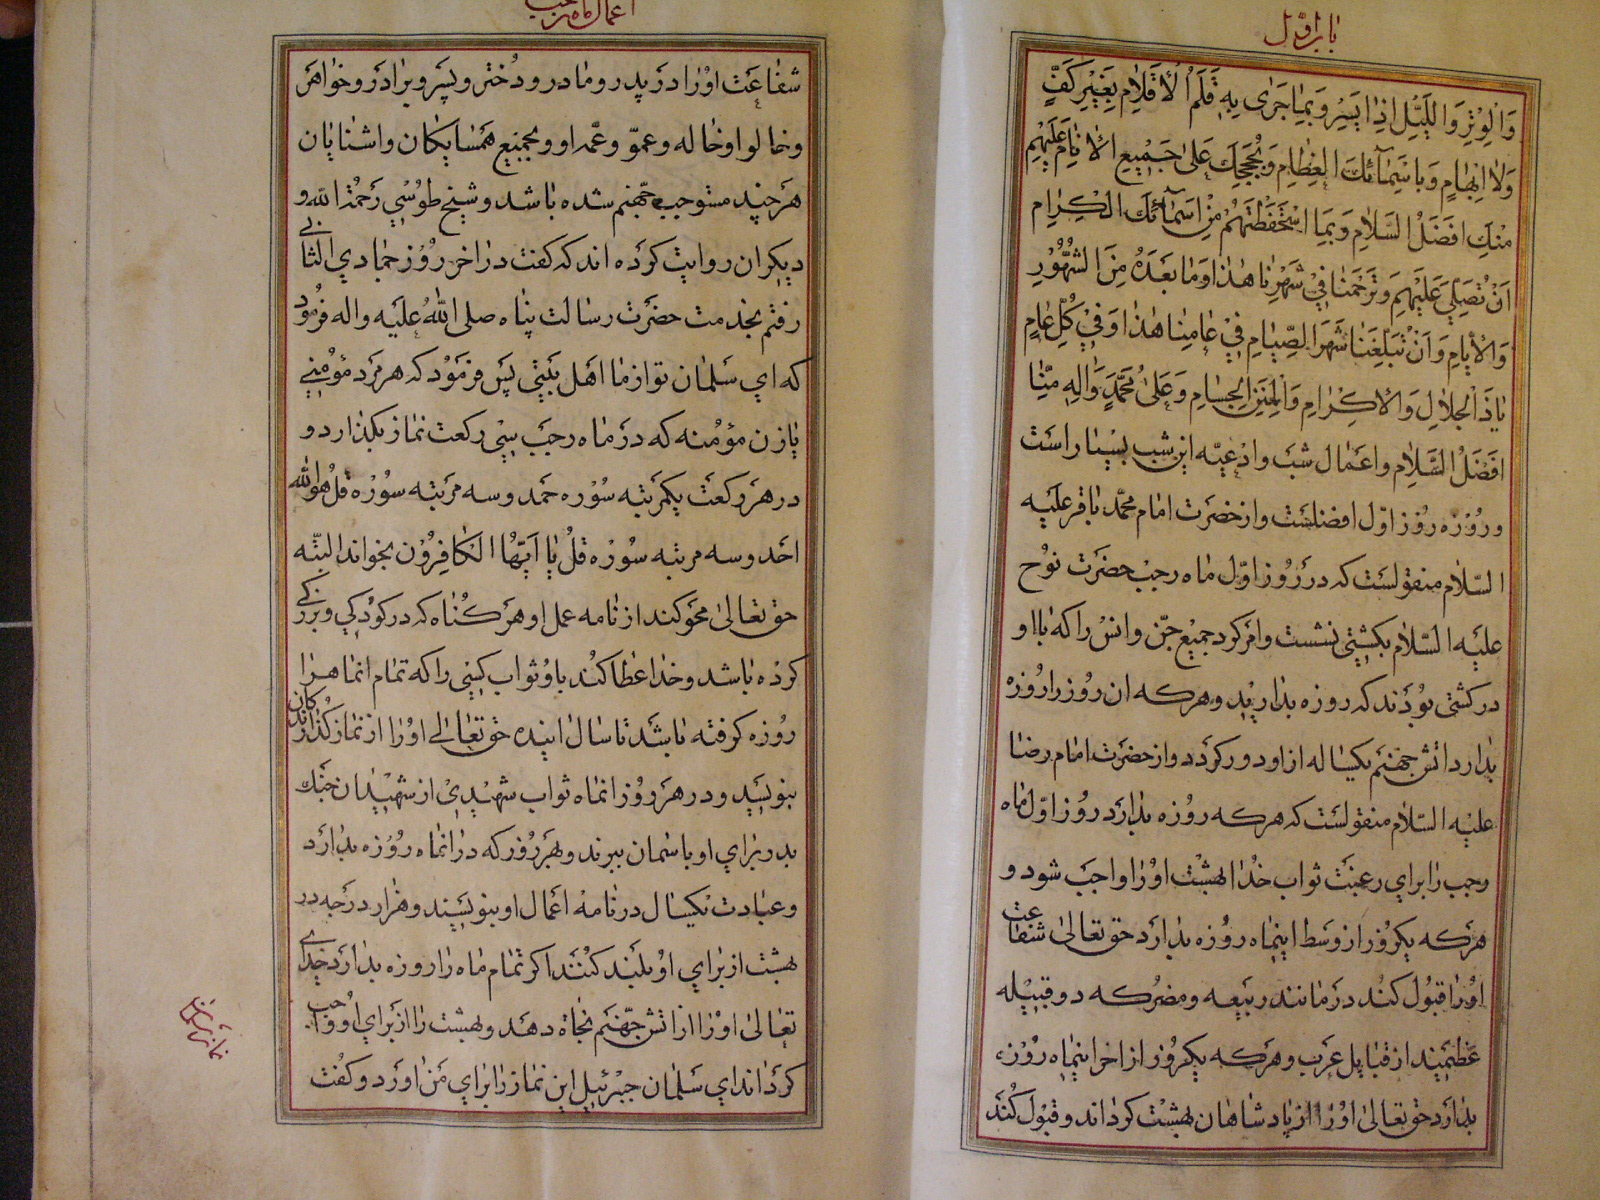 باب اوّل
وَالوِترِ وَاللَّيْلِ اِذا يَسْرِ وَبِما جَرى بِهِ قَلَمُ الْاَقْلامِ بِغَيْرِ كَفٍّ
وَلا اِبْهامٍ وَبِاَسْمآئِكَ العِظامِ وَبِحُجَجِكَ عَلىٰ جَميعِ الْاَنامِ عَلَيْهِم
مِنْكَ اَفْضَلُ السَّلامِ وَبِمَا اسْتَحْفَظْتَهُمْ مِنْ اَسْمآئِكَ الكِرامِ
اَنْ تُصَلِّيَ عَلَيْهِمْ وَتَرْحَمَنا في شَهْرِنا هٰذا وَما بَعْدَهُ مِنَ الشُّهُورِ
وَالْاَيّامِ وَاَنْ تُبَلِّغَنا شَهْرَ الصِّيامِ في عامِنا هٰذا وَفي كُلِّ عامٍ
ياذَا الْجَلالِ وَالْاِكْرامِ وَالْمِنَنِ الجِسامِ وَعَلىٰ مُحَمَّدٍ وَالِهِ مِنّا
اَفضَلُ السَّلامِ واعمال شب وادعيّه اين شب بسيار است
وروزه روز اوّل افضلست واز حضرت امام محمّد باقر عليه
السّلام منقولست كه در روز اوّل ماه رجب حضرت نوح
عليه السّلام بكشتى نشست وامر كرد جميع جنّ وانس را كه با او
در كشتى بودند كه روزه بداريد وهركه ان روز را روزه
بدارد اتش جهنم يكساله از او دور كردد واز حضرت امام رضا
عليه السّلام منقولست كه هركه روزه بدارد روز اوّل ماه
رجب را براي رغبت ثواب خدا بهشت اورا واجب شود و
هركه يكروز از وسط اينماه روزه بدارد حق تعالىٰ شفاعت
اورا قبول كند در مانند ربيعه ومضر كه دو قبيله
عظيمند از قبايل عرب وهركه يكروز از اخر اينماه روزه
بدارد حق تعالىٰ اورا از پادشاهان بهشت كرداند وقبول كند
اعمال ماه رجب
شفاعت اورا در پدر ومادر ودختر وپسر وبرادر وخواهر
وخالو اوخاله وعمّو وعمّه او وبجميع همسايكان واشنايان
هر چند مستوجب جهنم شده باشد وشيخ طوسي رحمة الله و
ديكران روايت كرده اند كه كفت در اخر روز جمادي الثاني
رفتم بخدمت حضرت رسالت پناه صلى الله عليه واله فرمود
كه اي سلمان تو از ما اهل بيتي پس فرمود كه هر مرد مؤمني
يازن مؤمنه كه در ماه رجب سي ركعت نماز بكذارد و
در هر ركعت يكمرتبه سوره حمد وسه مرتبه سوره قل هو الله
احد وسه مرتبه سوره قل يا ايّها الكافرون بخواند البتّه
حق تعالىٰ محو كند از نامه عمل او هر كناه كه در كودكي وبزركي
كرده باشد وخدا عطا كند باو ثواب كسي را كه تمام انماه را
روزه كرفته باشد تا سال اينده حق تعالي اورا از نماز كذارندكان
بنويسد ودر هر روز انماه ثواب شهيدي از شهيدان جنك
بدر براي او باسمان ببرند وبهر روز كه در انماه روزه بدارد
وعبادت يكسال در نامه اعمال او بنويسند وهزار درجه در
بهشت از براي او بلند كنند اكر تمام ماه را روزه بدارد خداي
تعالىٰ اورا از اتش جهنم نجاة دهد وبهشت را از براي او واجب
كرداند اي سلمان جبرئيل اين نماز را براي من اورد وكفت